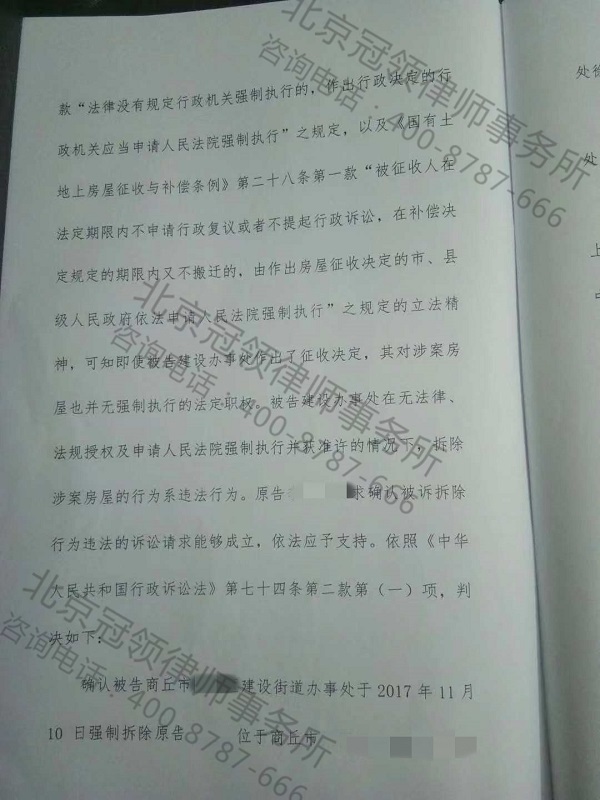 款“法律没有规定行政机关强制执行的，作出行政决定的行
政机关应当申请人民法院强制执行”之规定，以及《国有土
地上房屋征收与补偿条例》第二十八条第一款“被征收人在
法定期限内不申请行政复议或者不提起行政诉讼，在补偿决
定规定的期限内又不搬迁的，由作出房屋征收决定的市、县
级人民政府依法申请人民法院强制执行”之规定的立法精
神，可知即使被告建设办事处作出了征收决定，其对涉案房
屋也并无强制执行的法定职权。被告建设办事处在无法律、
法规授权及申请人民法院强制执行并获准许的情况下，拆除
涉案房屋的行为系违法行为。原告 求确认被诉拆除
行为违法的诉讼请求能够成立，依法应予支持。依照《中华
人民共和国行政诉讼法》第七十四条第二款第（一）项，判
决如下：
确认被告商丘市 建设街道办事处于 2017 年 11 月
10 日强制拆除原告 位于商丘市
处
处
上
北京冠领律师事务所
咨询电话：400-8787-666
北京冠领律师事务所
咨询电话：400-8787-666
北京冠领律师事务所
咨询电话：400-8787-666